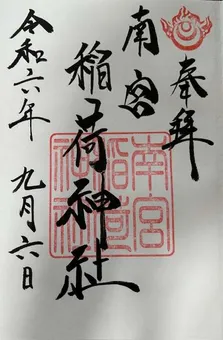 奉拝
南宮
稲荷神社
令和六年 九月六日
南宮
稲荷
神社